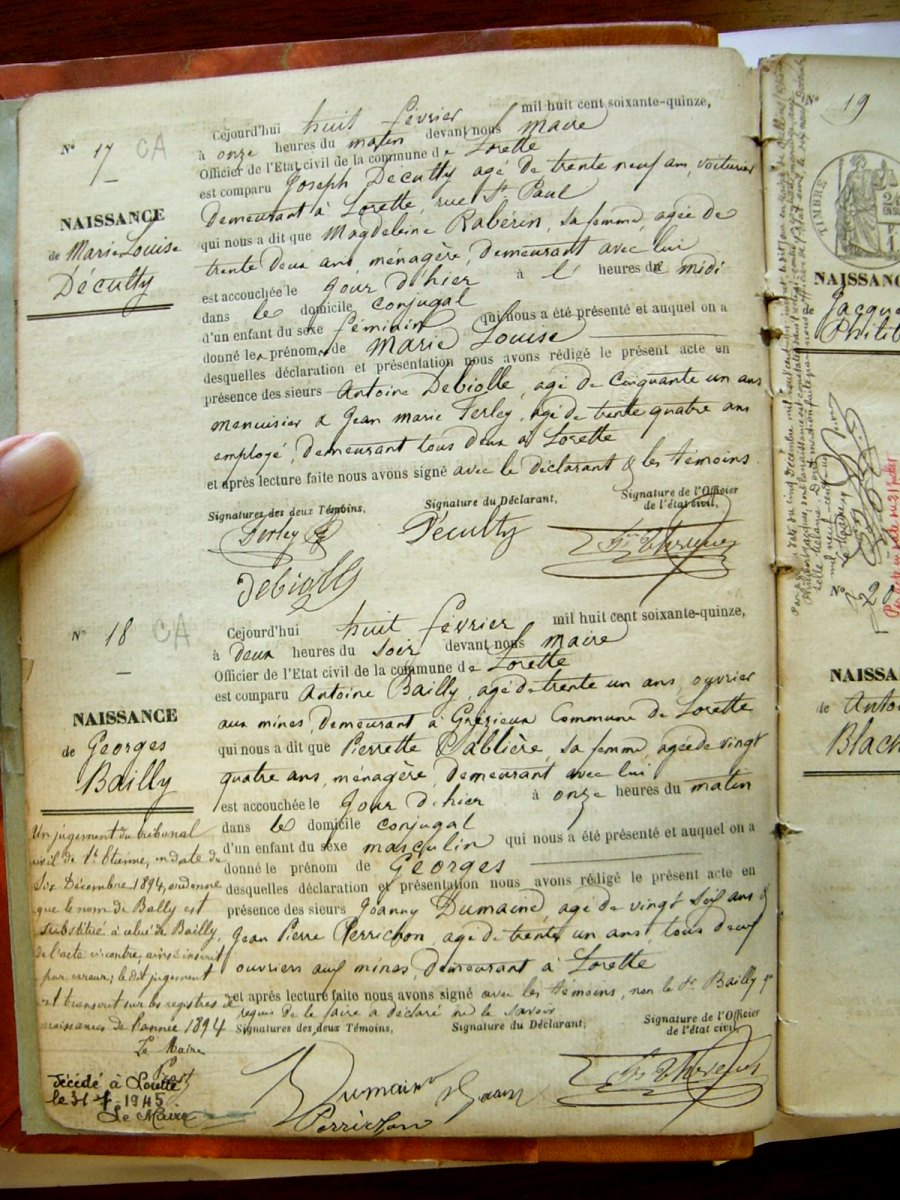 N° 17 CA
NAISSANCE
de Marie Louise
Décutty
Cejourd'hui huit février mil huit cent soixante-quinze,
à onze heures du matin devant nous maire
Officier de l'Etat civil de la commune de Lorette
est comparu Joseph Decutty agé de trente neuf ans, voiturier
demeurant à Lorette, rue St Paul
qui nous a dit que Magdeleine Raberin, sa femme, agée de
trente deux ans, ménagère, demeurant avec lui
est accouchée le jour d'hier à l' heures de midi
dans le domicile conjugal
d'un enfant du sexe féminin qui nous a été présenté et auquel on a
donné les prénoms de Marie Louise
desquelles déclaration et présentation nous avons rédigé le présent acte en
présence des sieurs Antoine Debiolle, agé de cinquante un ans
menuisier & Jean marie Ferley, agé de trente quatre ans
employé, demeurant tous deux à Lorette
et après lecture faite nous avons signé avec le déclarant & les témoins.
Signatures des deux Témoins, Signature du Déclarant, Signature de l'Officier
de l'état civil,
Ferley Décutty
Debiolle
N° 18 CA
NAISSANCE
de Georges
Bailly
Cejourd'hui huit février mil huit cent soixante-quinze,
à deux heures du soir devant nous maire
Officier de l'Etat civil de la commune de Lorette
est comparu Antoine Bailly, agé de trente un ans, ouvrier
aux mines, demeurant à Grézieux Commune de Lorette
qui nous a dit que Pierrette Cablière, sa femme, agée de vingt
quatre ans, ménagère, demeurant avec lui
est accouchée le jour d'hier à onze heures du matin
dans le domicile conjugal
d'un enfant du sexe masculin qui nous a été présenté et auquel on a
donné le prénom de Georges
desquelles déclaration et présentation nous avons rédigé le présent acte en
présence des sieurs Joanny Dumaine, agé de vingt six ans &
Jean Pierre Perrichon, agé de trente un ans, tous deux
ouvriers aux mines, demeurant à Lorette
et après lecture faite nous avons signé avec les témoins, non le Sr Bailly qui
requis de le faire a déclaré ne le savoir
Signatures des deux Témoins, Signature du Déclarant, Signature de l'Officier
de l'état civil
Dumaine
Perrichon
Un jugement du tribunal
civil de St Etienne, en date du
Six Décembre 1894, ordonne
que le nom de Bally est
substitué à celui de Bailly,
de l'acte ci contre, ainsi inscrit
par erreur; le dit jugement
est transcrit sur les registres de
naissances de l'année 1894
Le Maire
décédé à Lorette
le 31 1945
Le Maire
N° 19
TIMBRE
NAISSANC
de Jacque
Philib
N° 20
NAISSA
de Anto
Blach